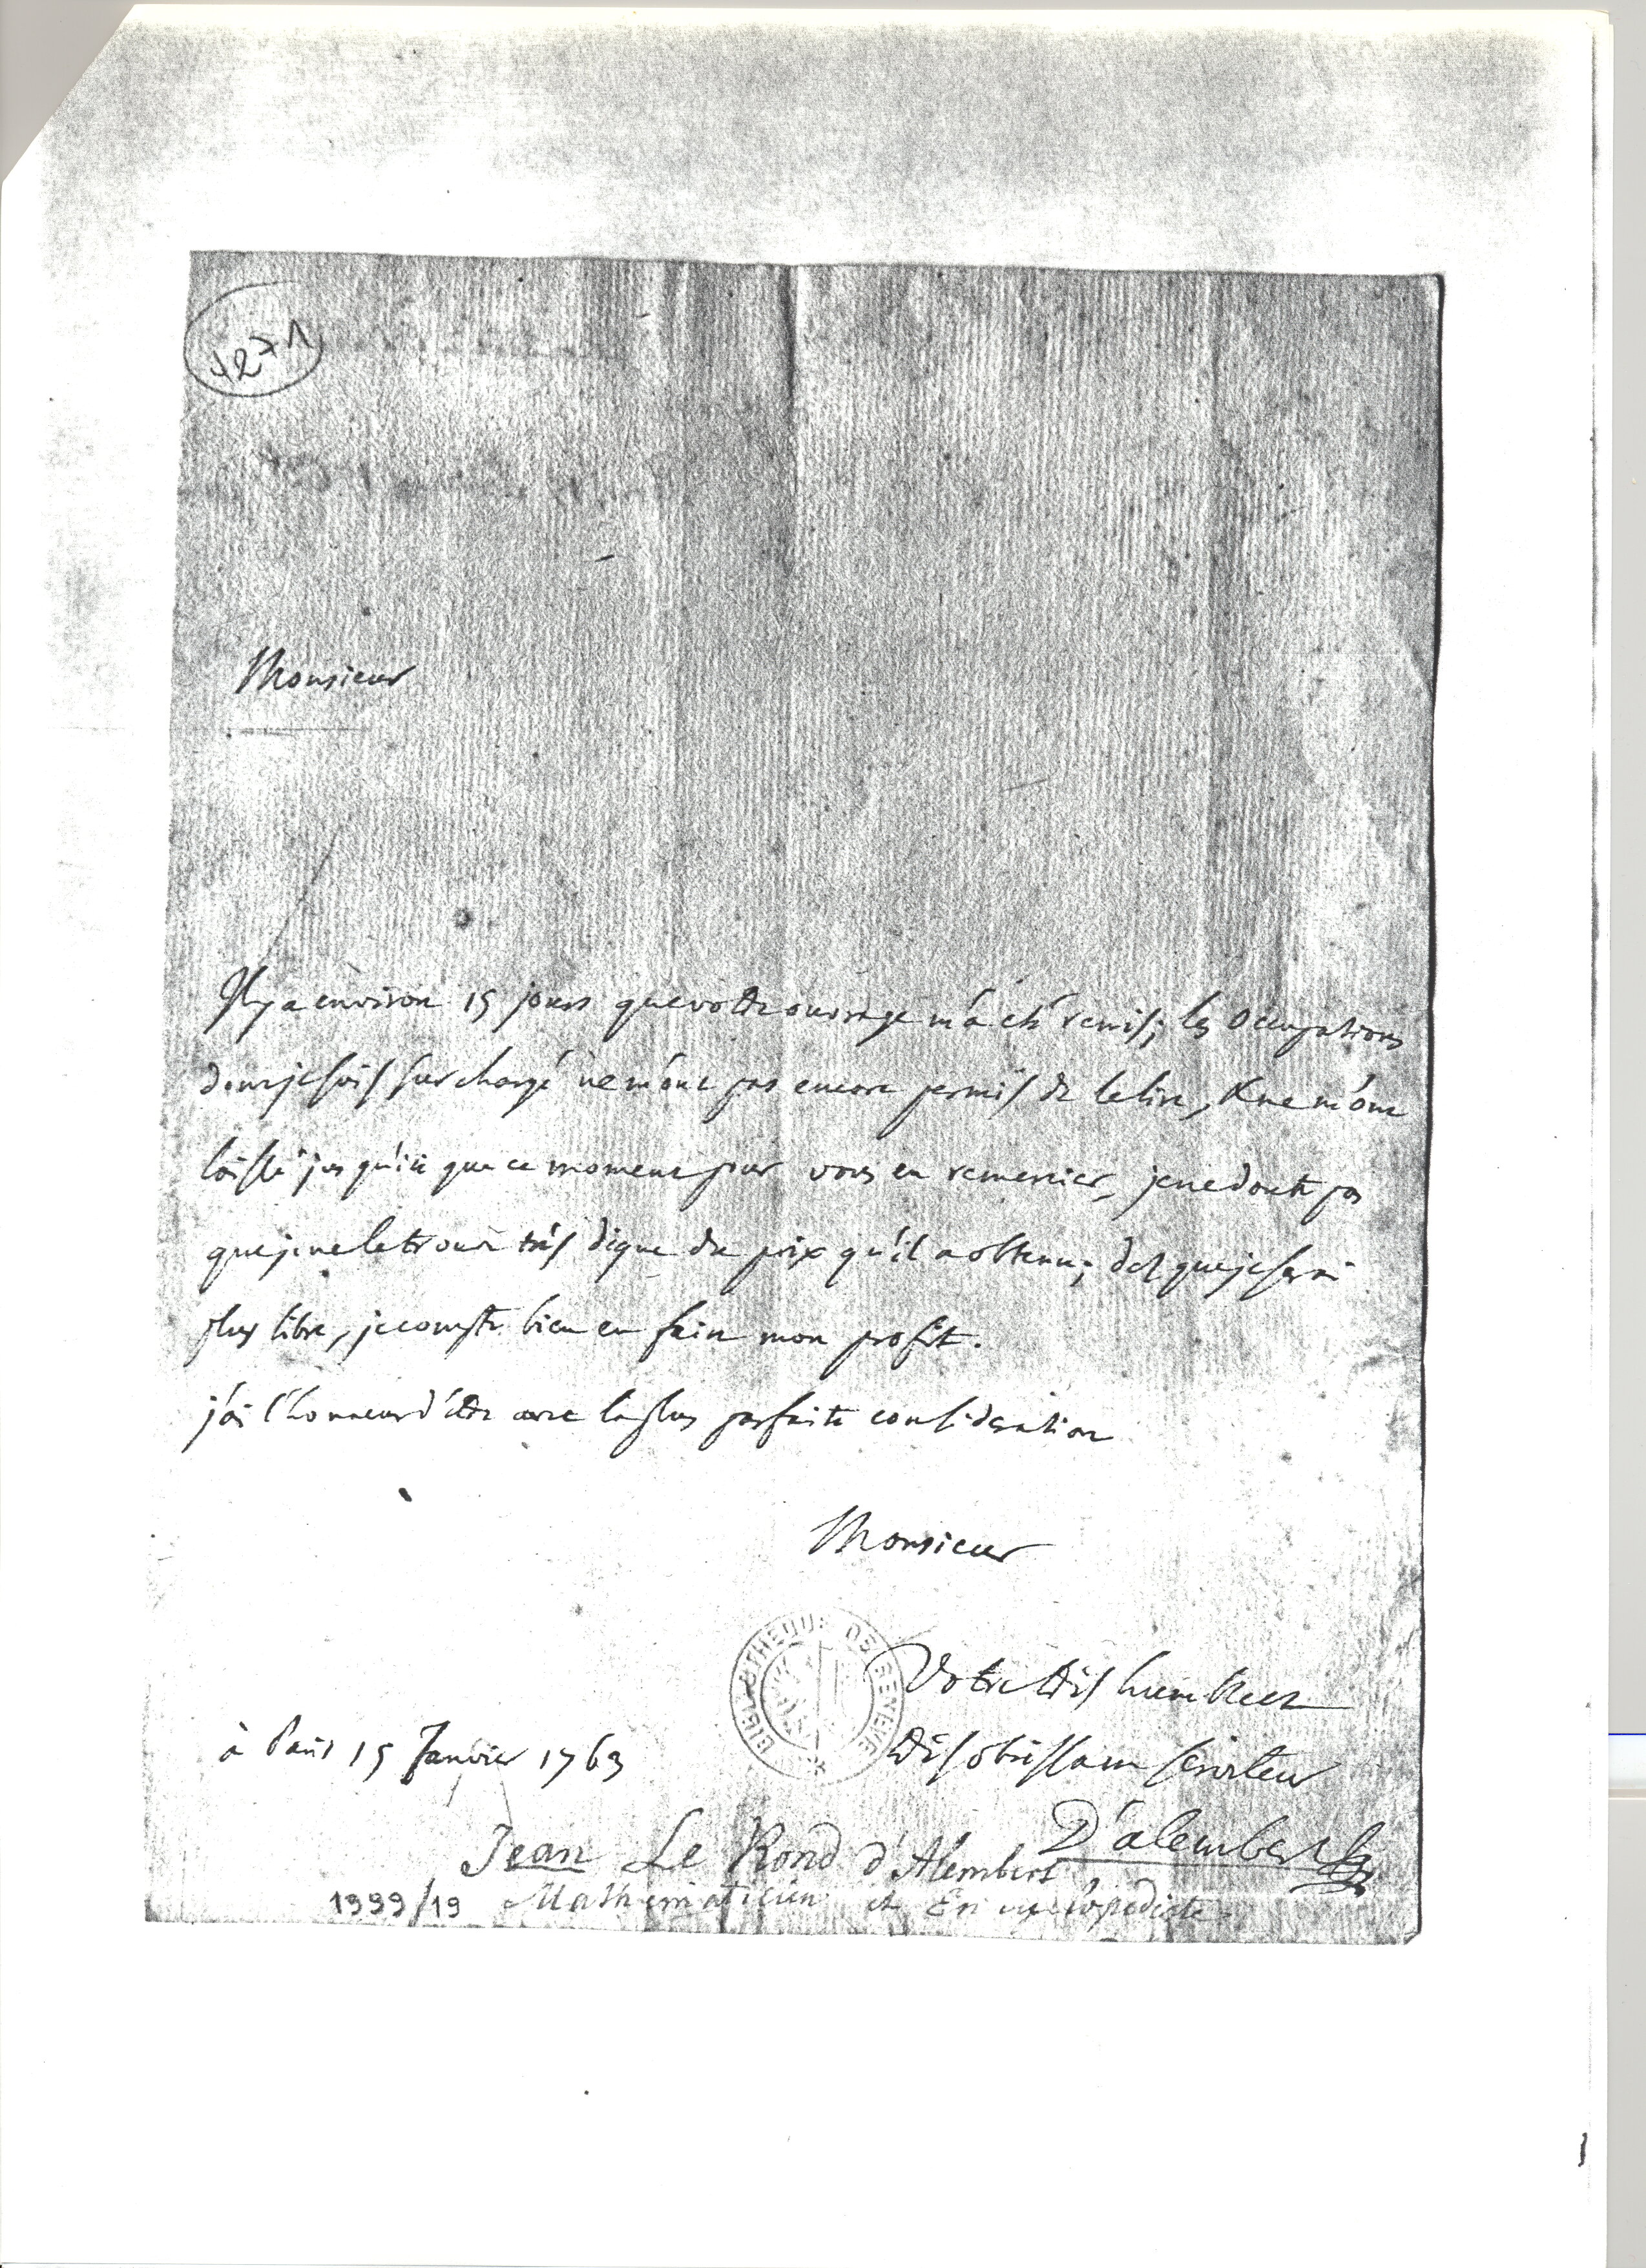 4271
Monsieur
Il y a environ 15 jours que votre ouvrage m'a été remis; les occupations
dont je suis surchargé ne m'ont pas encore permis de le lire, & ne m'ont
laissé jusqu'ici que ce moment pour vous en remercier, je ne doute pas
que je ne le trouve très digne du prix qu'il a obtenu; des que je serai
plus libre, je compte bien en faire mon profit.
j'ai l'honneur d'être avec la plus parfaite consideration
Monsieur
Votre très humble et
très obéissant serviteur
BIBLIOTHEQUE DE GENEVE
à Paris 15 Janvier 1763
D'alembert
Jean Le Rond d'Alembert
1999/19 Mathématicien et Encyclopédiste